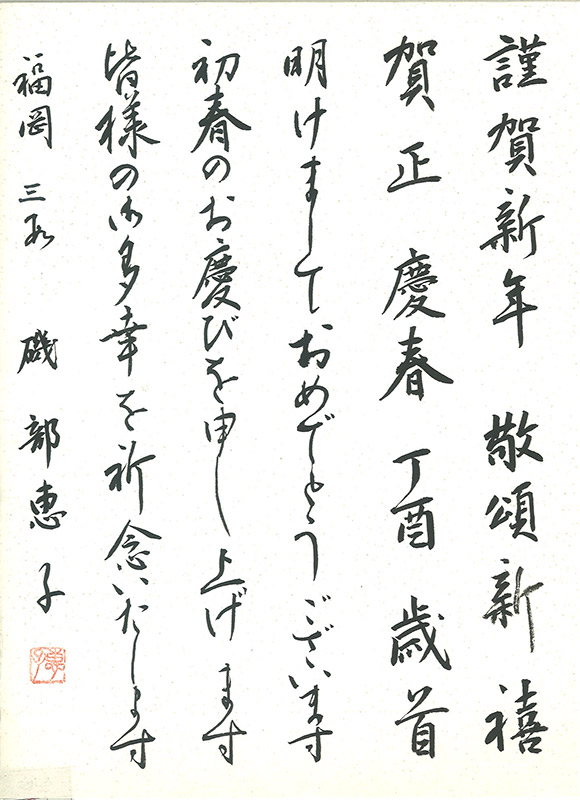 謹賀新年 敬頌新禧
賀正 慶春 丁酉 歳首
明けましておめでとうございます
初春のお慶びを申し上げます
皆様の御多幸を祈念いたします
福岡 三段 磯部恵子